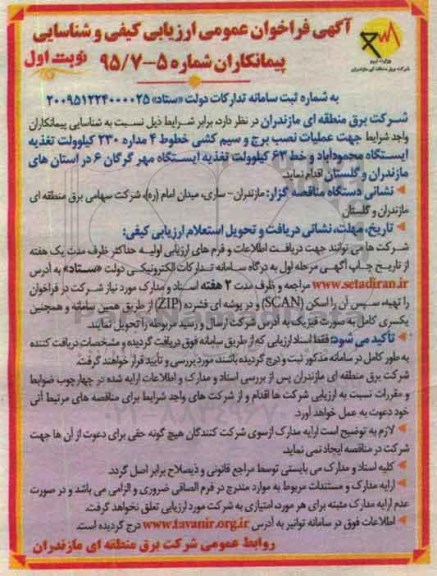 آگهی فراخوان عمومی ارزیابی کیفی و شناسایی
پیمانکاران شماره ۵-۹۵/۷
نوبت اول
وزارت نیرو
شرکت برق منطقه ای مازندران
به شماره ثبت سامانه تدارکات دولت «ستاد» ۲۰۰۹۵۱۲۲۴۰۰۰۰۲۵
شرکت برق منطقه ای مازندران در نظر دارد، برابر شرایط ذیل نسبت به شناسایی پیمانکاران
واجد شرایط جهت عملیات نصب برج و سیم کشی خطوط ۴ مداره ۲۳۰ کیلوولت تغذیه
ایستگاه محمودآباد و خط ۶۳ کیلوولت تغذیه ایستگاه مهر گرگان ۶ در استان های
مازندران و گلستان اقدام نماید.
نشانی دستگاه مناقصه گزار: مازندران- ساری، میدان امام (ره)، شرکت سهامی برق منطقه ای
مازندران و گلستان
تاریخ، مهلت، نشانی دریافت و تحویل استعلام ارزیابی کیفی:
شرکت ها می توانند جهت دریافت اطلاعات و فرم های ارزیابی اولیه حداکثر ظرف مدت یک هفته
از تاریخ چاپ آگهی مرحله اول به درگاه سامانه تدارکات الکترونیکی دولت «ستاد» به آدرس
www.setadiran.ir مراجعه و ظرف مدت ۲ هفته اسناد و مدارک مورد نیاز شرکت در فراخوان
را تهیه، سپس آن را اسکن (SCAN) و در پوشه ای فشرده (ZIP) از طریق همین سامانه و همچنین
یکسری کامل به صورت فیزیک به آدرس شرکت ارسال و رسید مربوطه را تحویل نمایند.
تأکید می شود: فقط اسناد ارزیابی که از طریق سامانه فوق دریافت گردیده و مشخصات دریافت کننده
به طور کامل در سامانه مذکور ثبت و درج گردیده باشند، مورد بررسی و تأیید قرار خواهند گرفت.
شرکت برق منطقه ای مازندران پس از بررسی اسناد و مدارک و اطلاعات ارایه شده در چهارچوب ضوابط
و مقررات نسبت به ارزیابی شرکت ها اقدام و از شرکت های واجد شرایط برای مناقصه های مرتبط آتی
خود دعوت به عمل خواهد آورد.
لازم به توضیح است ارایه مدارک ازسوی شرکت کنندگان هیچ گونه حقی برای دعوت از آن ها جهت
شرکت در مناقصه ایجاد نمی نماید.
کلیه اسناد و مدارک می بایستی توسط مراجع قانونی و ذیصلاح برابر اصل گردد.
ارایه مدارک و مستندات مربوط به موارد مندرج در فرم الصاقی ضروری و الزامی می باشد و در صورت
عدم ارایه مدارک مثبته برای هر مورد، امتیازی به شرکت مورد ارزیابی تعلق نخواهد گرفت.
اطلاعات فوق در سامانه توانیر به آدرس www.tavanir.org.ir درج گردیده است.
روابط عمومی شرکت برق منطقه ای مازندران